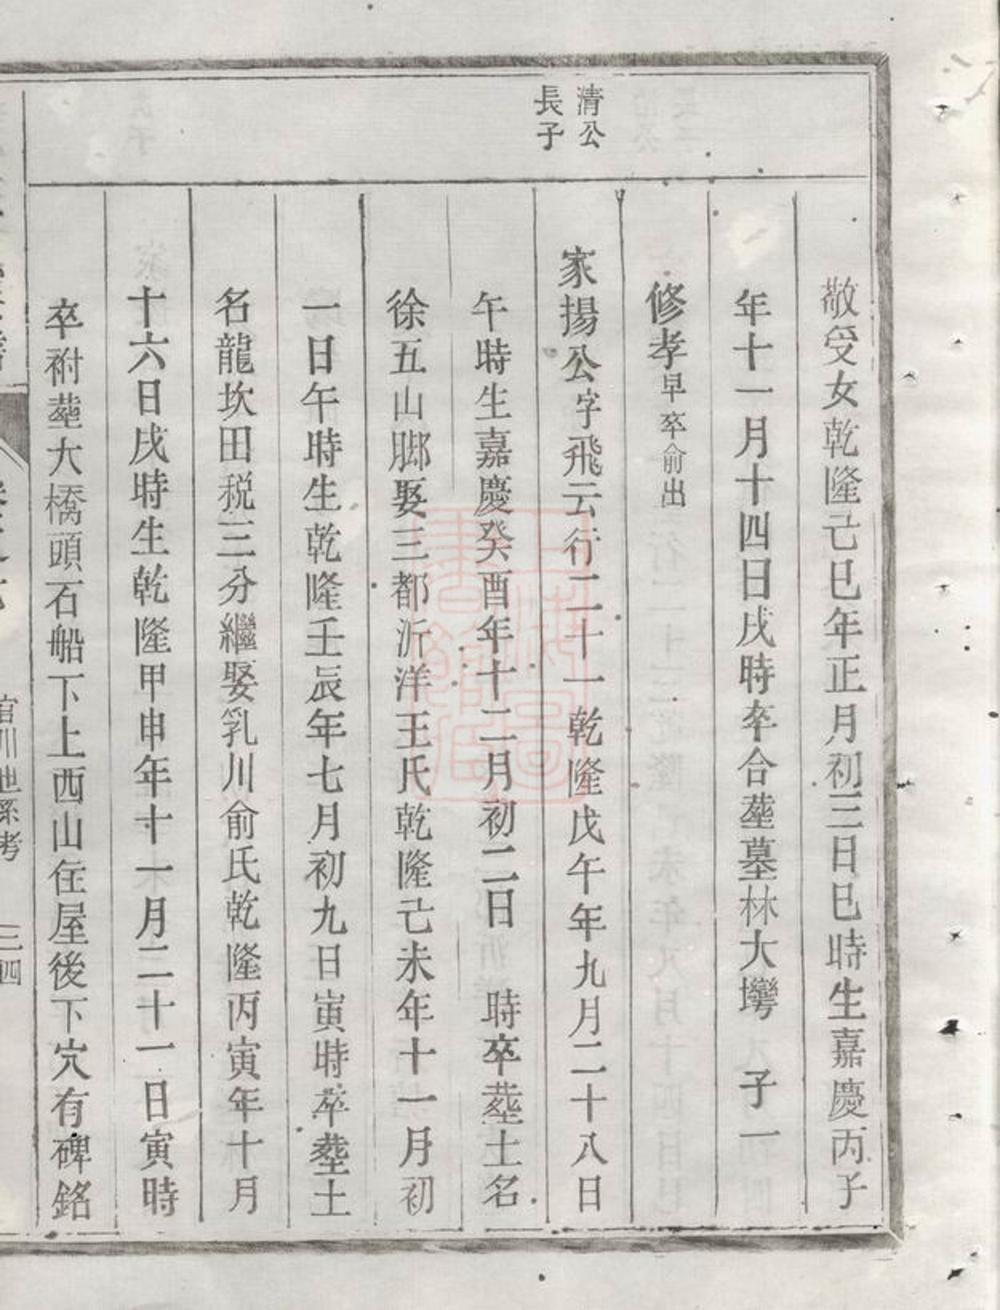 敬受女乾隆己巳年正月初三日巳時生嘉慶丙子
年十一月十四日戌時卒合塟墓林大灣　子一
修孝早卒俞出
清公
長子
家揚公字飛云行二十一乾隆戊午年九月二十八日
午時生嘉慶癸酉年十二月初二日　時卒塟土名
徐五山脚娶三都沂洋王氏乾隆己未年十一月初
一日午時生乾隆壬辰年七月初九日寅時卒塟土
名龍坎田税三分繼娶乳川俞氏乾隆丙寅年十月
十六日戌時生乾隆甲申年十一月二十一日寅時
卒祔塟大橋頭石船下上西山住屋後下穴有碑銘
官川世系考
三四